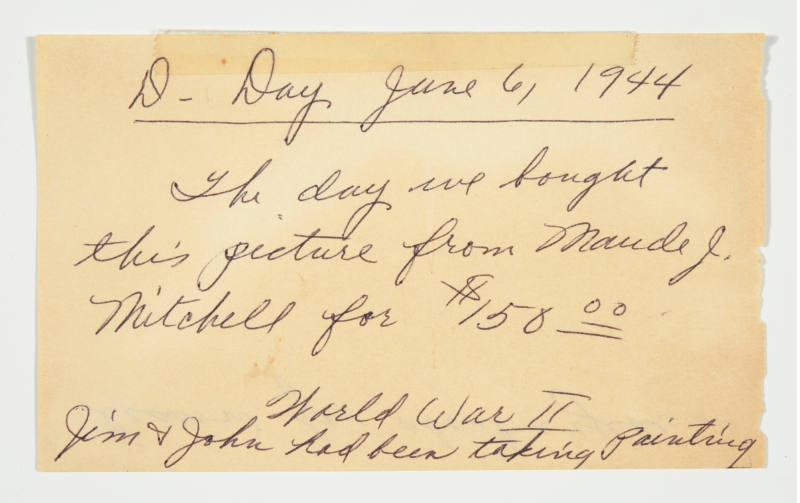 D- Day June 6, 1944
The day we bought
this picture from Maude J.
Mitchell for $150 00
World War II
Jim & John had been taking Painting